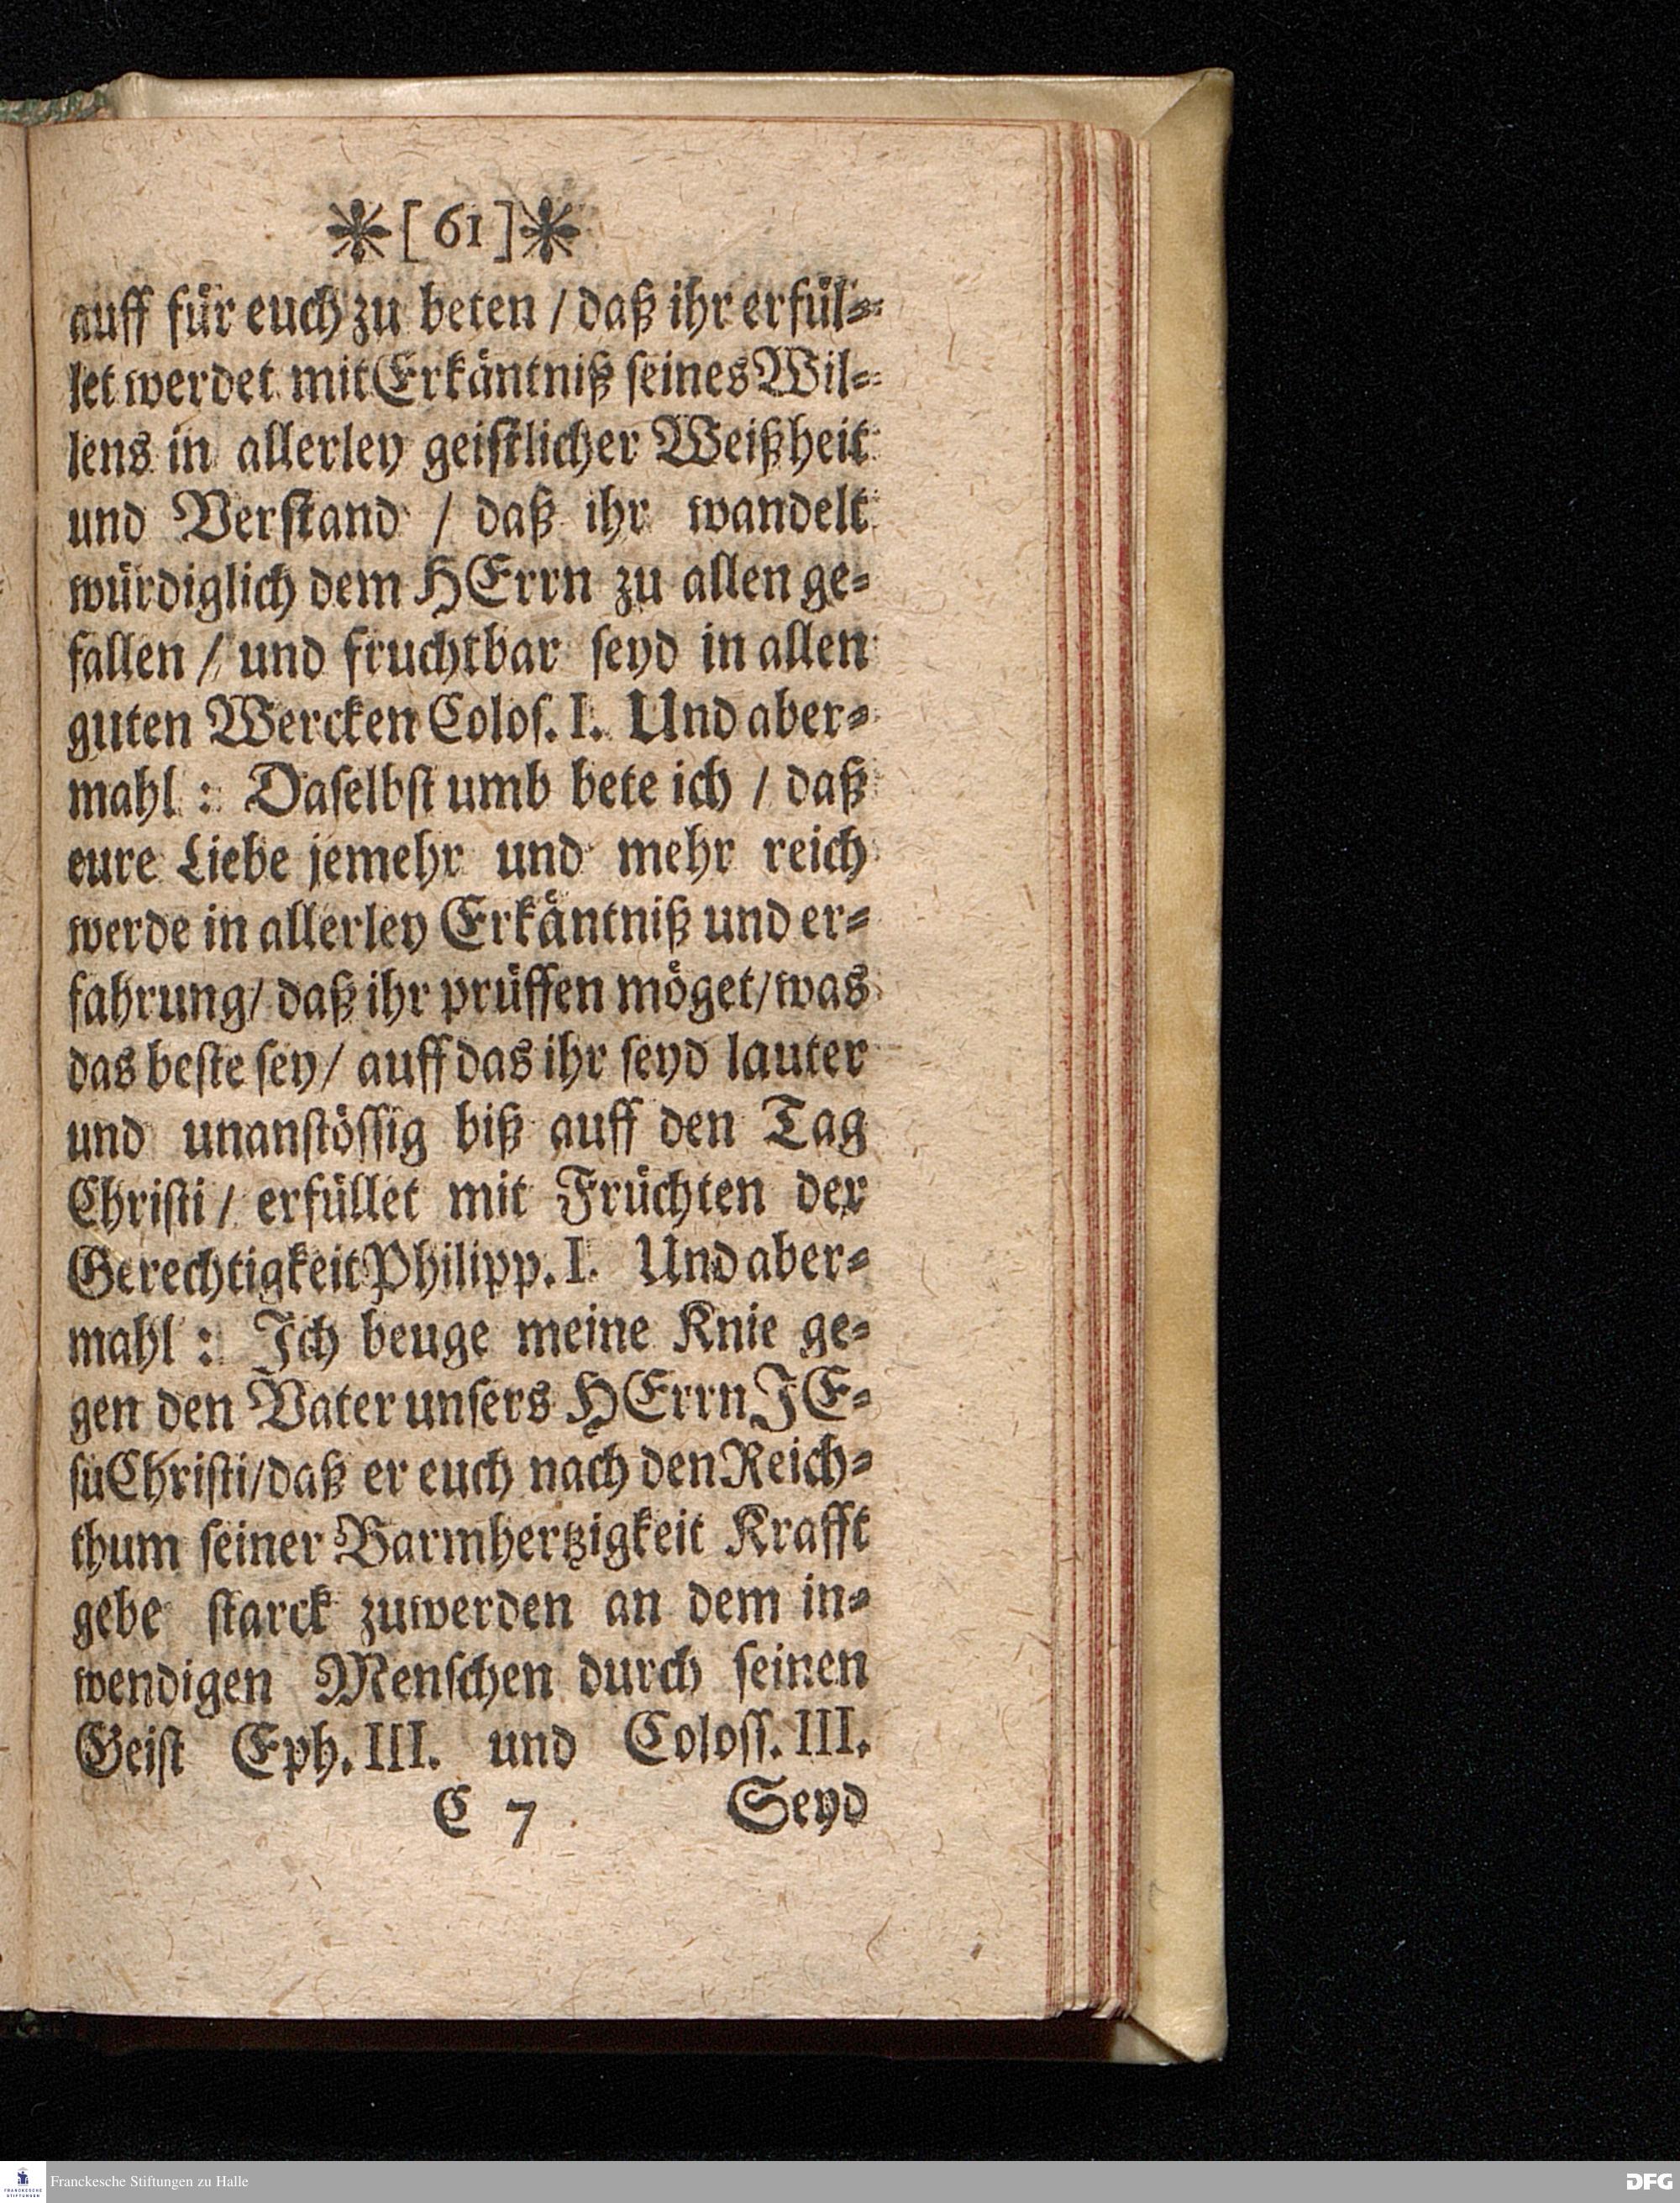 [ 61 ]
auff für euch zu beten / daß ihr erfül-
let werdet mit Erkäntniß seines Wil-
lens in allerley geistlicher Weißheit
und Verstand / daß ihr wandelt
würdiglich dem HErrn zu allen ge-
fallen / und fruchtbar seyd in allen
guten Wercken Colos. I. Und aber-
mahl : Daselbst umb bete ich / daß
eure Liebe jemehr und mehr reich
werde in allerley Erkäntniß und er-
fahrung / daß ihr prüffen möget / was
das beste sey / auff das ihr seyd lauter
und unanstössig biß auff den Tag
Christi / erfüllet mit Früchten der
Gerechtigkeit Philipp. I. Und aber-
mahl : Ich beuge meine Knie ge-
gen den Vater unsers HErrn JE-
su Christi / daß er euch nach den Reich-
thum seiner Barmhertzigkeit Krafft
gebe starck zuwerden an dem in-
wendigen Menschen durch seinen
Geist Eph. III. und Coloss. III.
C 7 Seyd
Franckesche Stiftungen zu Halle
FRANCKESCHE
STIFTUNGEN
DFG